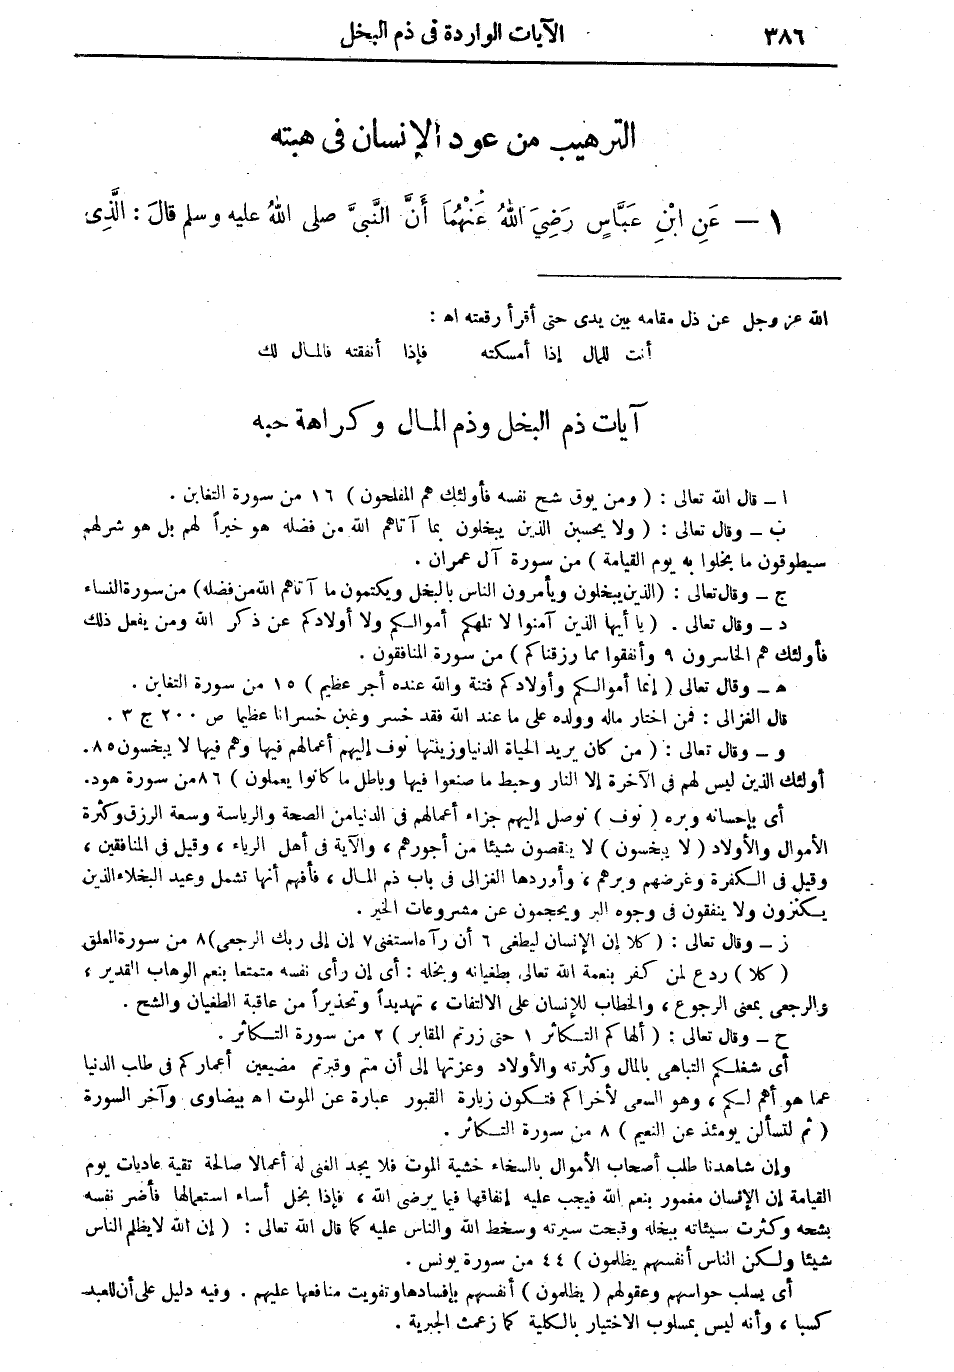 ٣٨٦ الآيات الواردة فى ذم البخل
الترهيب من عود الإنسان فى هبته
١ — عَنِ ابْنِ عَبَّاسٍ رَضِيَ اللهُ عَنْهُمَا أَنَّ النَّبِيَّ صلى اللهُ عليه وسلم قَالَ : الَّذِى
الله عز وجل عن ذل مقامه بين يدى حتى أقرأ رقعته اه :
أنت للمال إذا أمسكته فإذا أنفقته فالمال لك
آيات ذم البخل وذم المـال وكراهة حبه
ا ــ قال الله تعالى : ( ومن يوق شح نفسه فأولئك هم المفلحون ) ١٦ من سورة التغابن .
ب ــ وقال تعالى : ( ولا يحسبن الذين يبخلون بما آتاهم الله من فضله هو خيراً لهم بل هو شر لهم
سيطوقون ما بخلوا به يوم القيامة ) من سورة آل عمران .
ج ــ وقال تعالى : ( الذين يبخلون ويأمرون الناس بالبخل ويكتمون ما آتاهم الله من فضله ) من سورة النساء
د ــ وقال تعالى . ( يا أيها الذين آمنوا لا تلهكم أموالـكم ولا أولادكم عن ذكر الله ومن يفعل ذلك
فأولئك هم الخاسرون ٩ وأنفقوا مما رزقناكم ) من سورة المنافقون .
هـ ــ وقال تعالى ( إنما أموالـكم وأولادكم فتنة والله عنده أجر عظيم ) ١٥ من سورة التغابن .
قال الغزالى : فمن اختار ماله وولده على ما عند الله فقد خسر وغبن خسرانا عظيما ص ٢٠٠ ج ٣ .
و ــ وقال تعالى : ( من كان يريد الحياة الدنيا وزينتها نوف إليهم أعمالهم فيها وهم فيها لا يبخسون ٨٥ .
أولئك الذين ليس لهم فى الآخرة إلا النار وحبط ما صنعوا فيها وباطل ما كانوا يعملون ) ٨٦ من سورة هود .
أى بإحسانه وبره ( نوف ) نوصل إليهم جزاء أعمالهم فى الدنيا من الصحة والرياسة وسعة الرزق وكثرة
الأموال والأولاد ( لا يبخسون ) لا ينقصون شيئا من أجورهم ، والآية فى أهل الرياء ، وقيل فى المنافقين ،
وقيل فى الـكفرة وغرضهم وبرهم ، وأوردها الغزالى فى باب ذم المـال ، فأفهم أنها تشمل وعيد البخلاء الذين
يـكنزون ولا ينفقون فى وجوه البر ويحجمون عن مشروعات الخير .
ز ــ وقال تعالى : ( كلا إن الإنسان ليطغى ٦ أن رآه استغنى ٧ إن إلى ربك الرجعى ) ٨ من سورة العلق
( كلا ) ردع لمن كفر بنعمة الله تعالى بطغيانه وبخله : أى إن رأى نفسه متمتعا بنعم الوهاب القدير ،
والرجعى بمعنى الرجوع ، والخطاب للإنسان على الالتفات ، تهديداً وتحذيراً من عاقبة الطغيان والشح .
ح ــ وقال تعالى : ( ألهاكم التـكاثر ١ حتى زرتم المقابر ) ٢ من سورة التـكاثر .
أى شغلـكم التباهى بالمال وكثرته والأولاد وعزتها إلى أن متم وقبرتم مضيعين أعماركم فى طلب الدنيا
عما هو أهم لـكم ، وهو السعى لأخراكم فتـكون زيارة القبور عبارة عن الموت اه بيضاوى وآخر السورة
( ثم لتسألن يومئذ عن النعيم ) ٨ من سورة التـكاثر .
وإن شاهدنا طلب أصحاب الأموال بالسخاء خشية الموت فلا يجد الغنى له أعمالا صالحة تقية عاديات يوم
القيامة إن الإنسان مغمور بنعم الله فيجب عليه إنفاقها فيما يرضى الله ، فإذا بخل أساء استعمالها فأضر نفسه
بشحه وكثرت سيئاته ببخله وقبحت سيرته وسخط الله والناس عليه كما قال الله تعالى : ( إن الله لا يظلم الناس
شيئا ولـكن الناس أنفسهم يظلمون ) ٤٤ من سورة يونس .
أى يسلب حواسهم وعقولهم ( يظلمون ) أنفسهم بإفسادها وتفويت منافعها عليهم . وفيه دليل على أن للعبد
كسبا ، وأنه ليس بمسلوب الاختيار بالـكلية كما زعمت الجبرية .